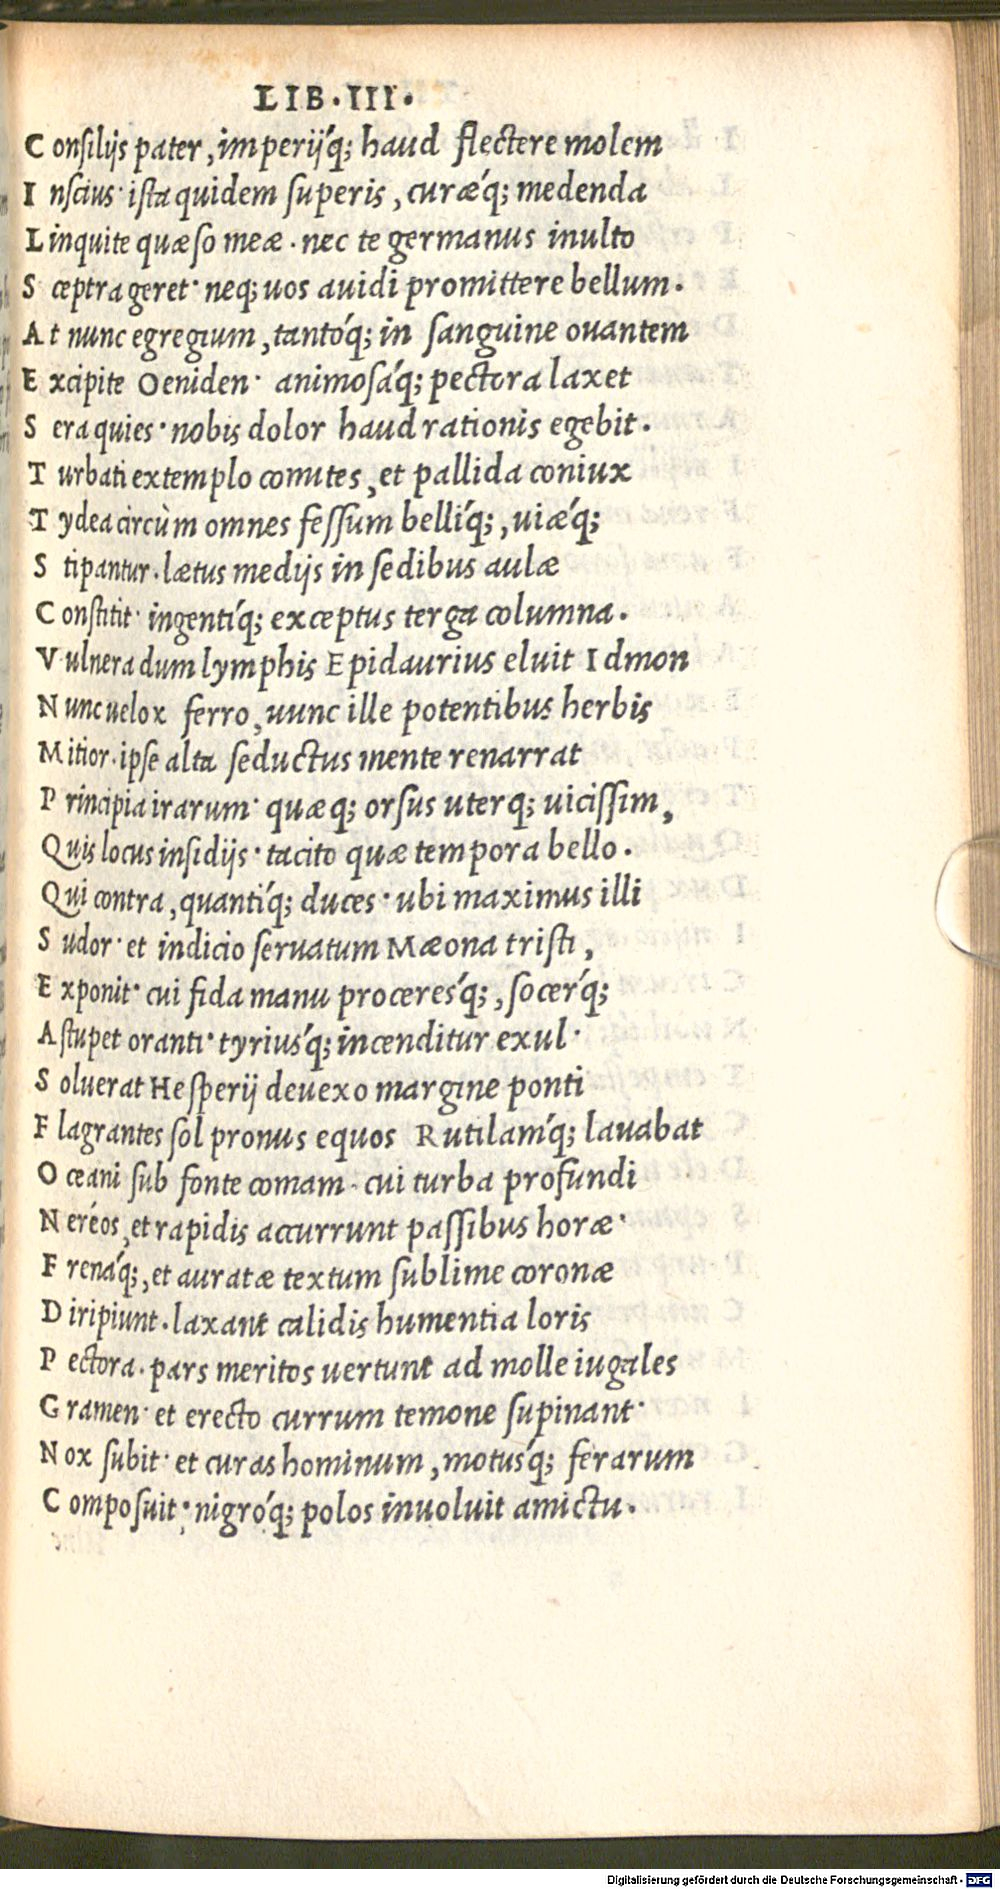 LIB.III.
C onsilijs pater, imperij´q; haud flectere molem
I nscius· ista quidem superis, curæ´q; medenda
L inquite quæso meæ. nec te germanus inulto
S ceptra geret· neq; uos auidi promittere bellum.
A t nunc egregium, tantó´q; in sanguine ouantem
E xcipite Oeniden· animosá´q; pectora laxet
S era quies· nobis dolor haud rationis egebit.
T urbati extemplo comites, et pallida coniux
T ydea circùm omnes fessum bellí´q;, uiæ´q;
S tipantur. lætus medijs in sedibus aulæ
C onstitit· ingentí´q; exceptus terga columna.
V ulnera dum lymphis Epidaurius eluit Idmon
N unc uelox ferro, uunc ille potentibus herbis
M itior. ipse alta seductus mente renarrat
P rincipia irarum· quæq; orsus uterq; uicissim,
Q uis locus insidijs· tacito quæ tempora bello.
Q ui contra, quantí´q; duces· ubi maximus illi
S udor· et indicio seruatum Mæona tristi,
E xponit· cui fida manu procerés´q;, socér´q;
A stupet oranti· tyriús´q; incenditur exul·
S oluerat Hesperij deuexo margine ponti
F lagrantes sol pronus equos Rutilam´q; lauabat
O ceani sub fonte comam. cui turba profundi
N eréos, et rapidis accurrunt passibus horæ·
F rená´q;, et auratæ textum sublime coronæ
D iripiunt. laxant calidis humentia loris
P ectora. pars meritos uertunt ad molle iugales
G ramen· et erecto currum temone supinant·
N ox subit· et curas hominum, motús´q; ferarum
C omposuit· nigró´q; polos inuoluit amictu.
Digitalisierung gefördert durch die Deutsche Forschungsgemeinschaft - DFG